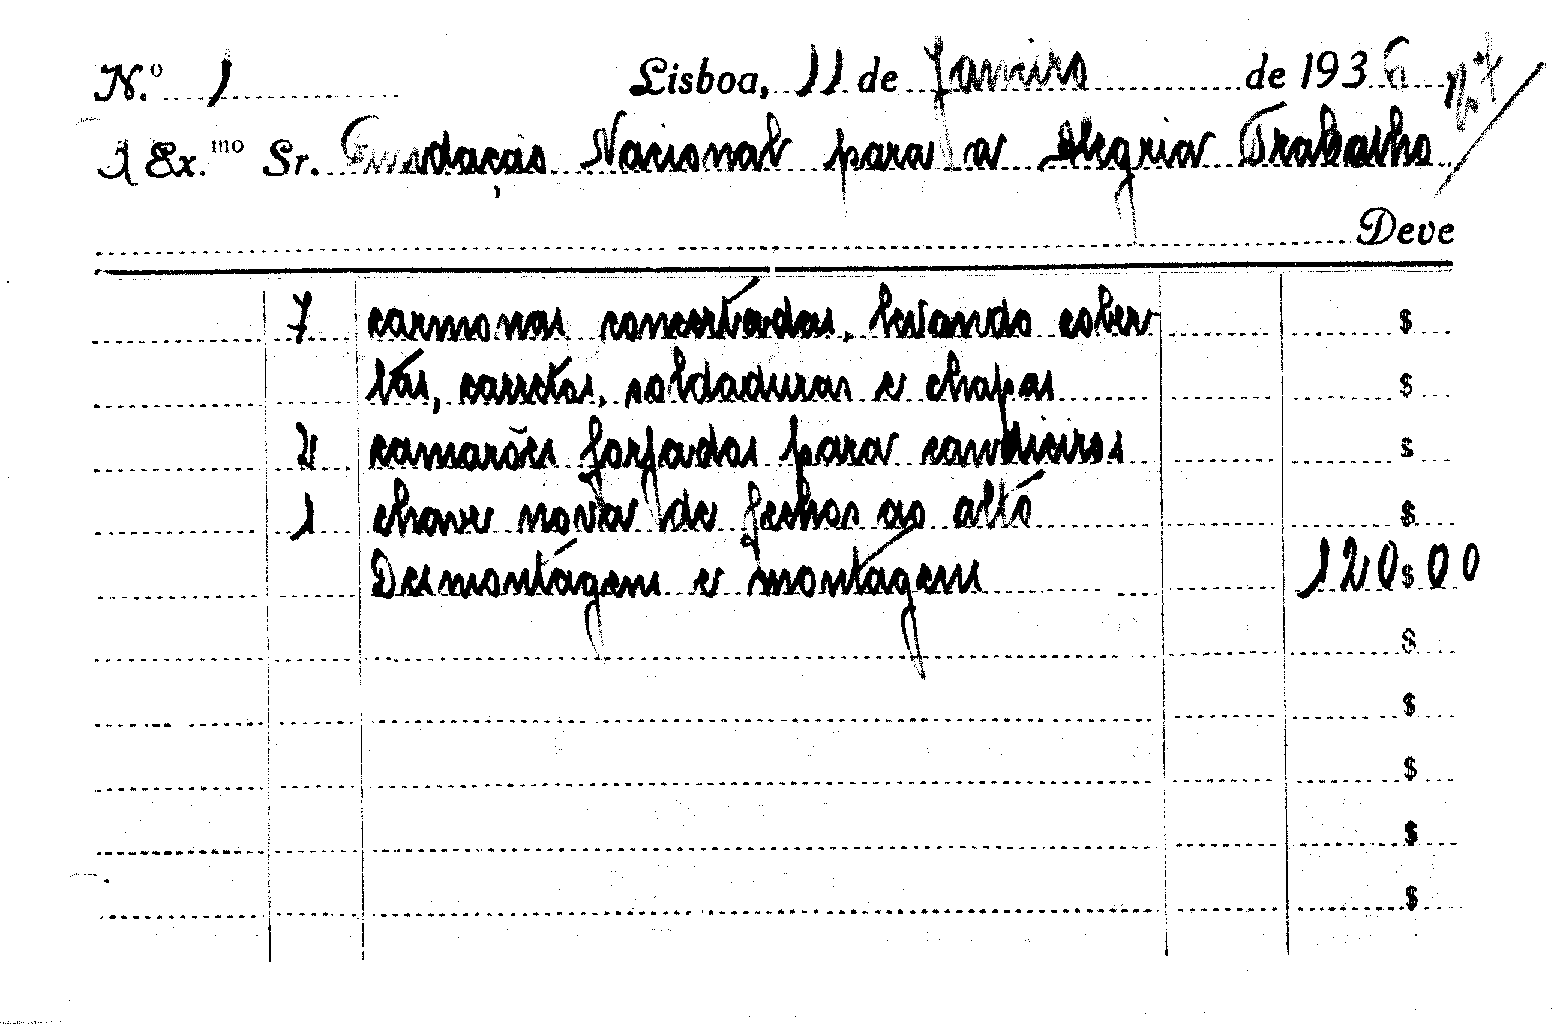 N.º 1 Lisboa, 11 de Janeiro de 1936
A Ex.mo Sr. Fundação Nacional para a Alegria Trabalho
Deve
7 carmonas concertadas, levando cober $
tas, carretos, soldaduras e chapas $
2 camarões forjados para candieiros $
1 chave nova de fechos ao alto $
Desmontagem e montagem 120$00
$
$
$
$
$